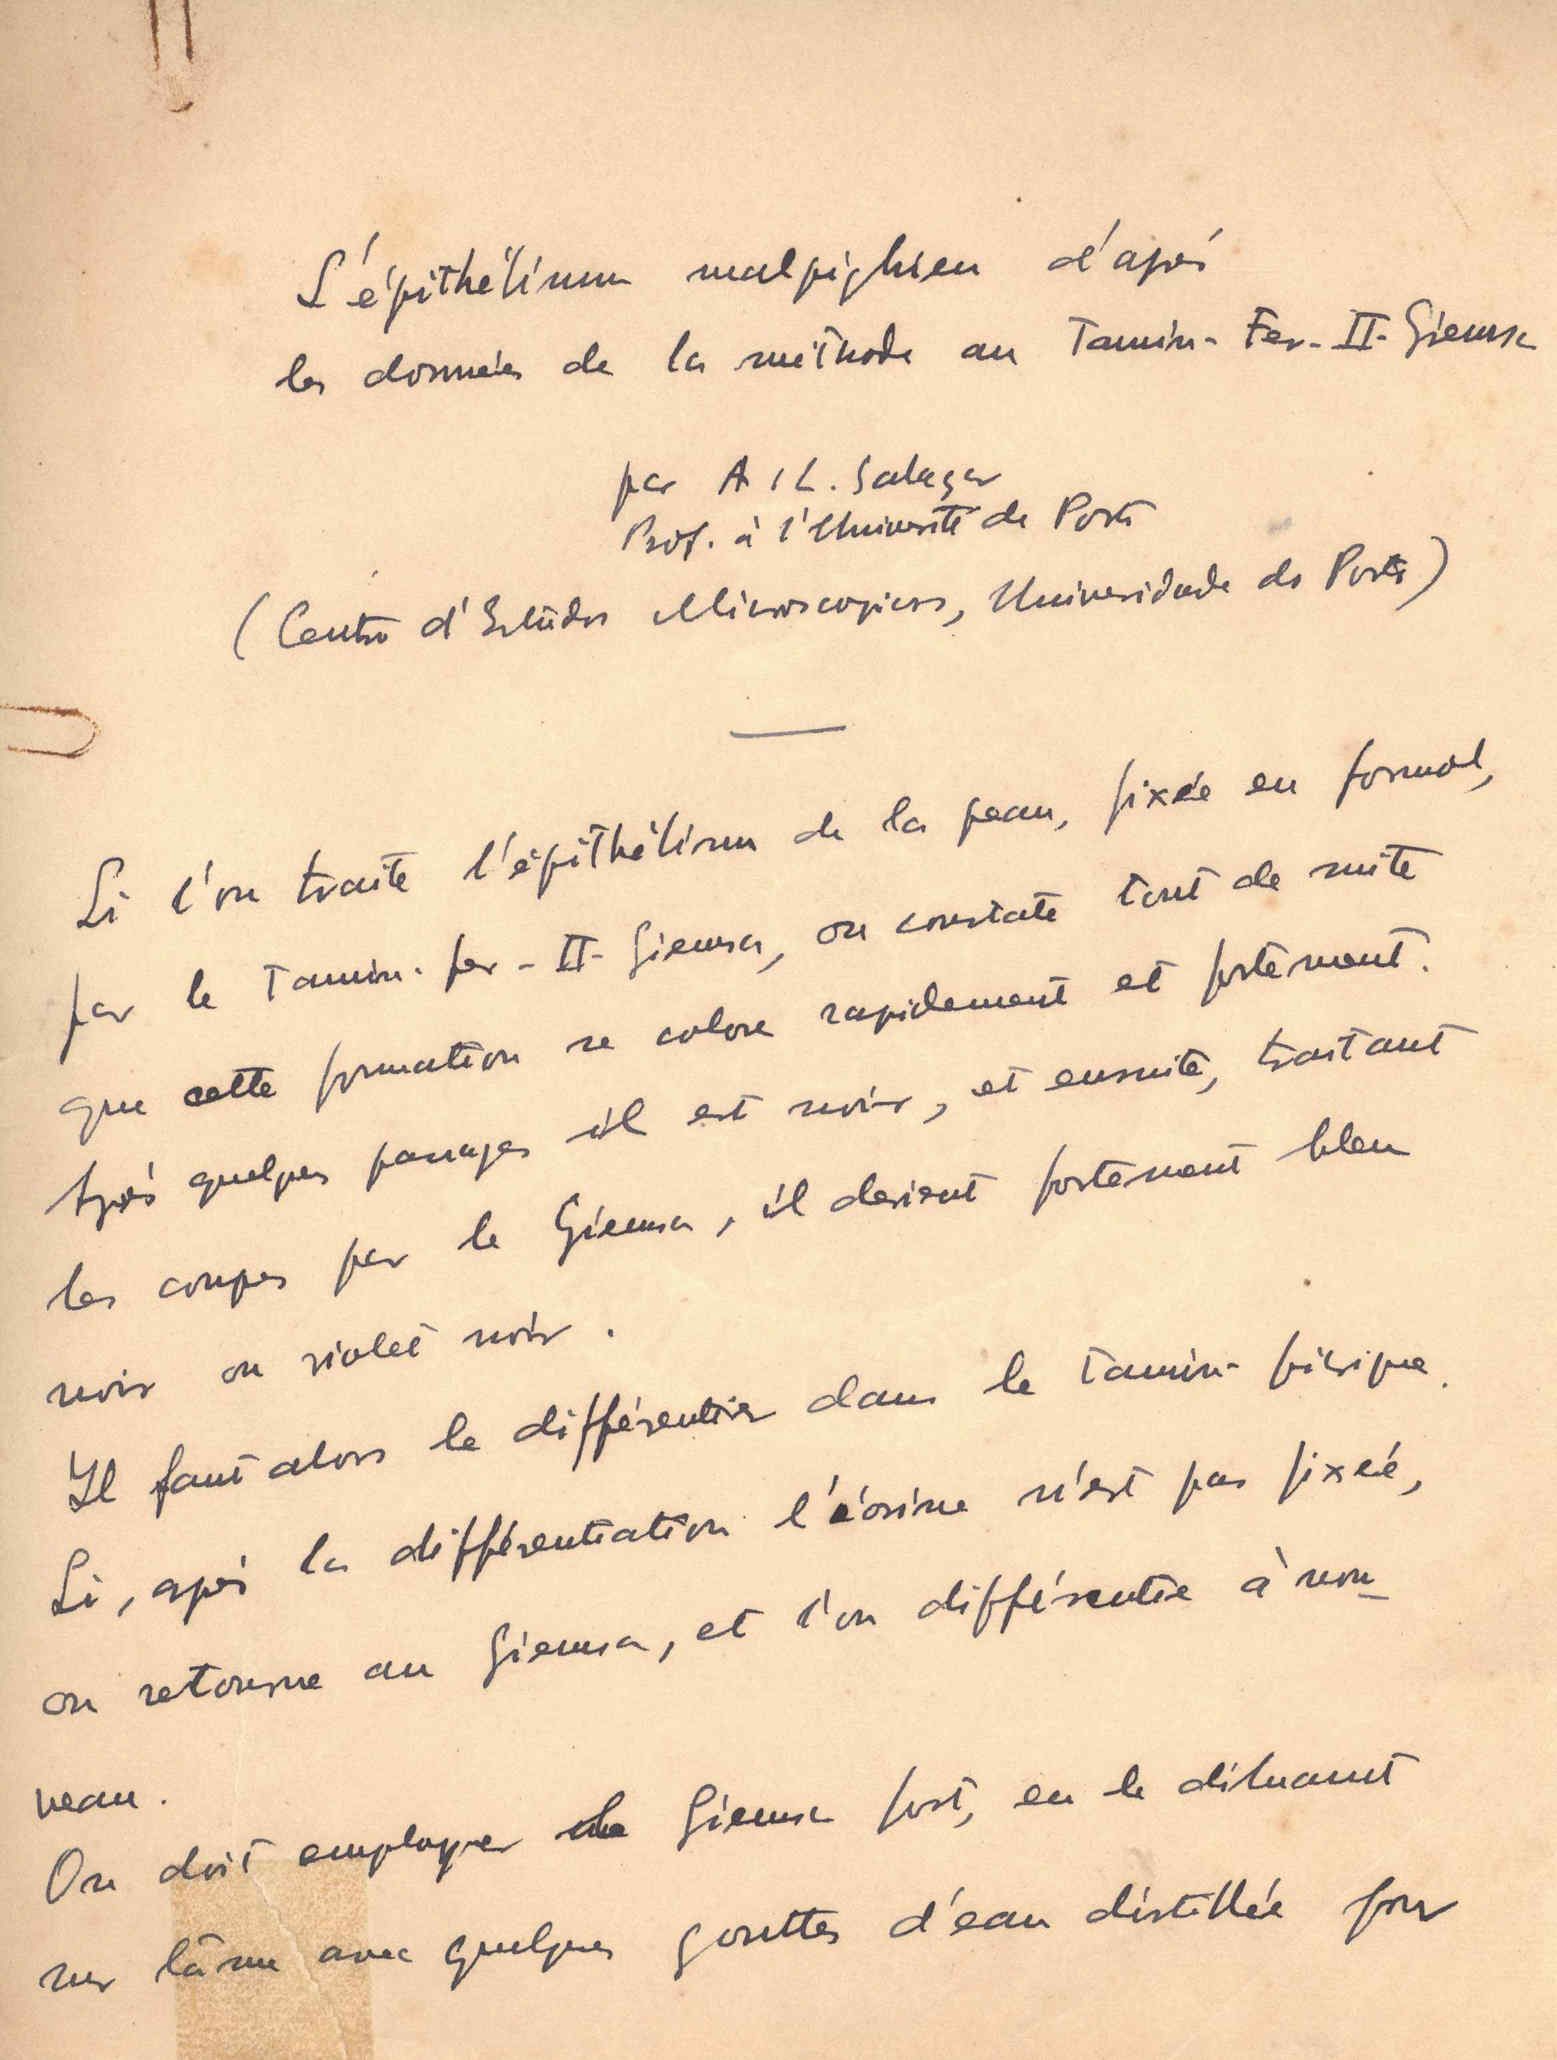 L'épithélium malpighien d'après
les données de la méthode au Tannin-Fer-II-Giemsa
par A. L. Salazar
Prof. à l'Université de Porto
(Centro d'Estudos Microscopicos, Universidade do Porto)
Si l'on traite l'épithélium de la peau, fixée en formol,
par le Tannin-fer-II-Giemsa, on constate tout de suite
que cette formation se colore rapidement et fortement.
Après quelques passages il est noir, et ensuite, traitant
les coupes par le Giemsa, il devient fortement bleu
noir ou violet noir.
Il faut alors le différentier dans le tannin-picrique.
Si, après la différentiation l'éosine n'est pas fixée,
on retourne au Giemsa, et l'on différentie à nou-
veau.
On doit employer le Giemsa fort, en le diluant
sur lâme avec quelques gouttes d'eau distillée pour